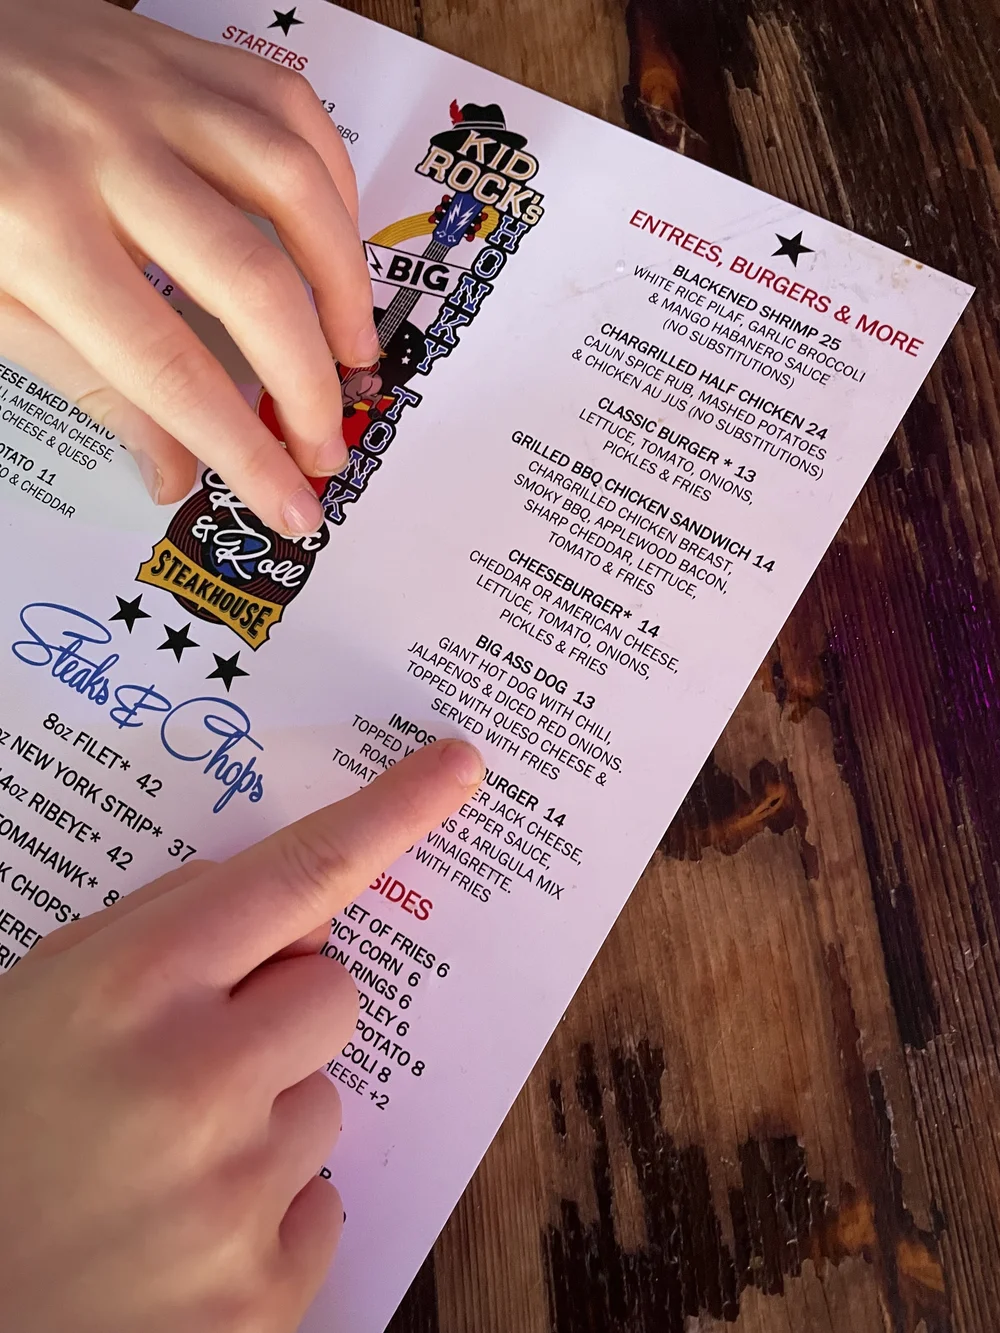 STARTERS
13
BBQ
8
BAKED POTATO
AMERICAN CHEESE,
CHEESE & QUESO
11
& CHEDDAR
KID
ROCK'S
BIG
HONKY TONK
& Roll
STEAKHOUSE
Steaks & Chops
8oz FILET* 42
NEW YORK STRIP* 37
14oz RIBEYE* 42
TOMAHAWK*
CHOPS*
ENTREES, BURGERS & MORE
BLACKENED SHRIMP 25
WHITE RICE PILAF, GARLIC BROCCOLI
& MANGO HABANERO SAUCE
(NO SUBSTITUTIONS)
CHARGRILLED HALF CHICKEN 24
CAJUN SPICE RUB, MASHED POTATOES
& CHICKEN AU JUS (NO SUBSTITUTIONS)
CLASSIC BURGER * 13
LETTUCE, TOMATO, ONIONS,
PICKLES & FRIES
GRILLED BBQ CHICKEN SANDWICH 14
CHARGRILLED CHICKEN BREAST,
SMOKY BBQ, APPLEWOOD BACON,
SHARP CHEDDAR, LETTUCE,
TOMATO & FRIES
CHEESEBURGER* 14
CHEDDAR OR AMERICAN CHEESE,
LETTUCE, TOMATO, ONIONS,
PICKLES & FRIES
BIG ASS DOG 13
GIANT HOT DOG WITH CHILI,
JALAPENOS & DICED RED ONIONS.
TOPPED WITH QUESO CHEESE &
SERVED WITH FRIES
BURGER 14
TOPPED JACK CHEESE,
PEPPER SAUCE,
& ARUGULA MIX
VINAIGRETTE.
WITH FRIES
SIDES
OF FRIES 6
CORN 6
RINGS 6
6
POTATO 8
8
+2